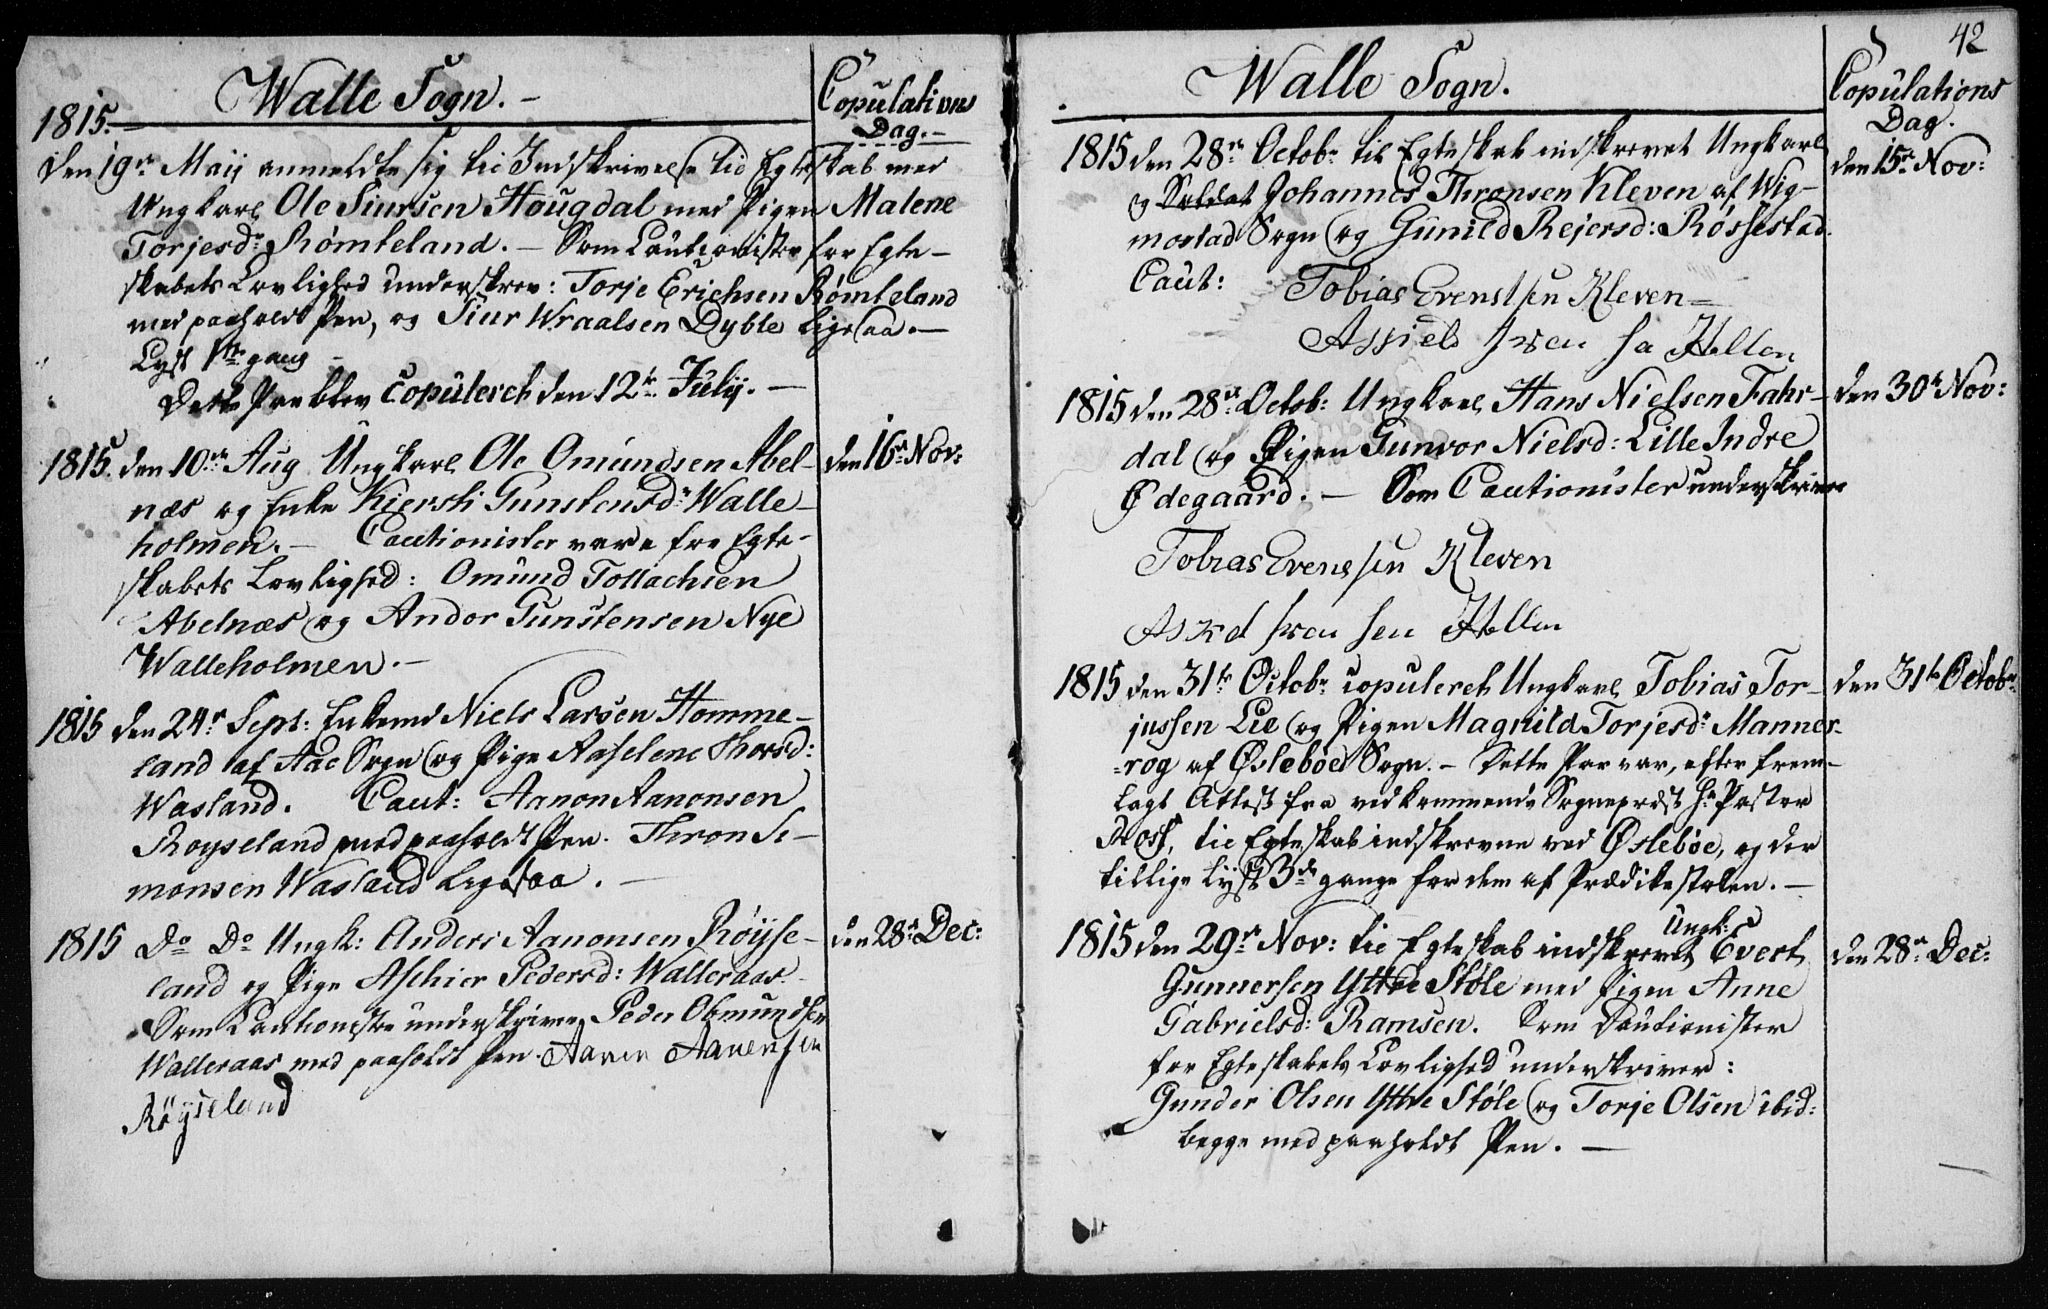 Walle Sogn. –
Copulations
Dag. –
1815. –
Den 19de Maij anmeldte sig til Indskrivelse til Egteskab med
Ungkarl Ole Siursen Hougdal med Pigen Malene
Torjesdr Rømteland. – Som Cautionister for Egte-
skabets Lovlighed underskrev: Torje Erichsen Rømteland
med paaholdt Pen, og Siur Wraalsen Dyble ligesaa. –
Lyst 1te gang –
Dette Par blev copuleret den 12te July. –
1815. den 10de Aug Ungkarl Ole Omundsen Abel- den 16de Nov:
næs og Enke Kiersti Gunstensdr Walle-
holmen. – Cautionister vare for Egte-
skabets Lovlighed: Omund Tollachsen
Abelnæs og Andor Gunstensen Nye
Walleholmen. –
1815 den 24de Sept: Enkemd Niels Larsen Homme-
land af Aae Sogn og Pige Aaselene Thorsd:
Wasland. Caut: Aanon Aanonsen
Royseland med paaholdt Pen. Thron Si-
monsen Wasland ligesaa. –
1815 Do Do Ungk: Anders Aanonsen Röysse- den 28de Dec:
land og Pige Aschier Pedersd: Walleraas. –
Som Cautionister underskriver Peder Obmundsen
Walleraas med paaholdt Pen. Aanen Aanensen
Röyseland
42
Walle Sogn.
Copulations
Dag.
1815 den 28de Octobr til Egteskab indskrevet Ungkarl den 15de Nov:
og Soldat Johannes Thronsen Kleven af Wig-
mostad Sogn og Gunild Rejersd: Røssestad.
Caut: Tobias Evensen Kleven –
1815 den 28de Octob: Ungkarl Hans Nielsen Fahr- den 30te Nov:
dal og Pigen Gunvor Nielsd: Lille Indre
Ødegaard. – Som Cautionister underskriver
Tobias Evenssen Kleven
1815 den 31te Octobr copuleret Ungkarl Tobias Tor- den 31te Octobr
jussen Lie og Pigen Magnild Torjesdr Manner-
=rog af Øslebøe Sogn. – Dette Par var, efter frem-
lagt Attest fra vedkommende Sogneprest Hr Pastor
Ross, til Egteskab indskrevne ved Øslebøe, og der
tillige lyst 3de gange for dem af Prædikestolen. –
1815 den 29de Nov: til Egteskab indskrevet Ungk: Evert den 28de Dec:
Gunnersen Yttre Støle med Pigen Anne
Gabrielsd: Ramsen. Som Cautionister
for Egteskabets Lovlighed underskriver:
Gunder Olsen Yttre Støle og Torje Olsen ibid:
begge med paaholdt Pen. –